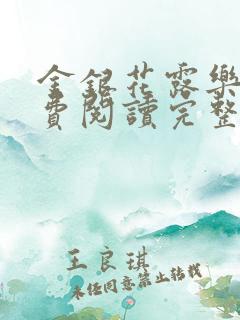 金銀花露樂
費閱讀完整
王良琪
未经同意禁止转载